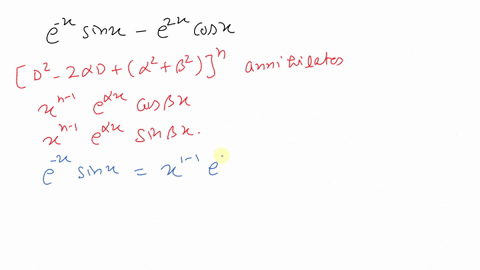 e^{-x} sinx − e^{2x} cosx
[D² − 2αD + (α² + β²)]^n annihilates
x^{n-1} e^{αx} cosβx
x^{n-1} e^{αx} sinβx.
e^{-x} sinx = x^{1-1} e^{